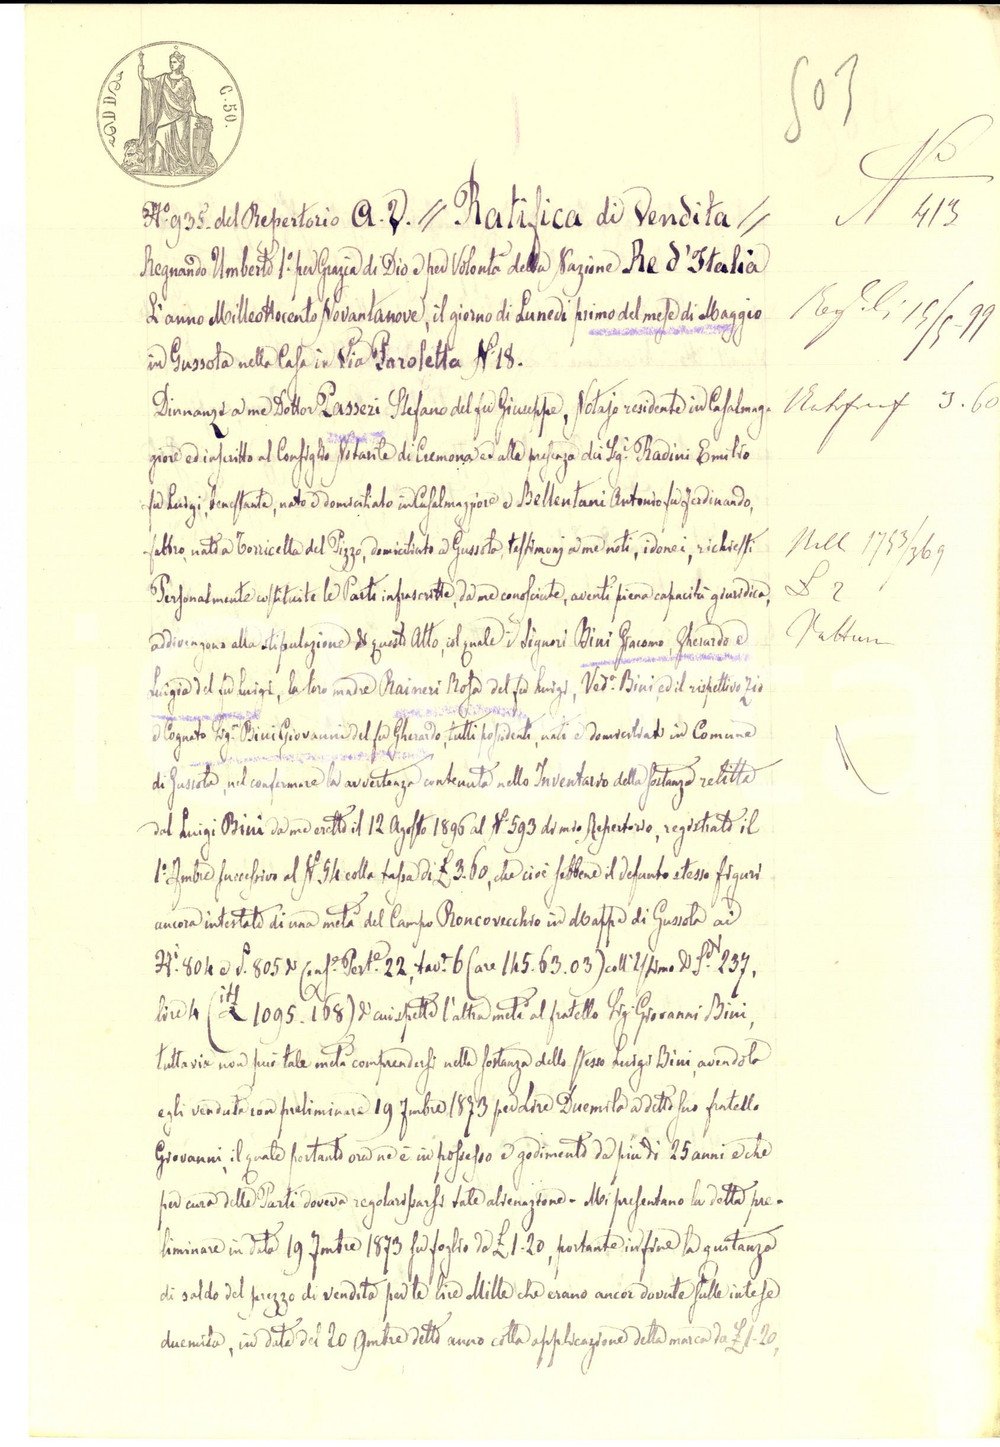 C. 50.
503
N° 413
N.° 935. del Repertorio A. V. // Ratifica di Vendita //
Regnando Umberto 1.° per Grazia di Dio e per Volontà della Nazione Re d'Italia
L'anno Milleottocento Novantanove, il giorno di Lunedì primo del mese di Maggio
Reg. li 15/5-99
in Gussola nella Casa in Via Paroletta N.° 18.
Dinnanzi a me Dottor Passeri Stefano del fu Giuseppe, Notajo residente in Casalmag-
3.60
giore ed inscritto al Consiglio Notarile di Cremona ed alla presenza dei Sig.ri Radini Emilio
fu Luigi, benestante, nato e domiciliato in Casalmaggiore e Bellentani Antonio fu Ferdinando,
fabbro, nato a Torricella del Pizzo, domiciliato a Gussola, testimonj a me noti, idonei, richiesti
1753/369
Personalmente costituite le Parti infrascritte, da me conosciute, aventi piena capacità giuridica,
£ 2
addivengono alla stipulazione di questo Atto, col quale i Signori Bini Giacomo, Gherardo e
Luigia del fu Luigi, la loro madre Raineri Rosa del fu Luigi, Ved.a Bini, ed il rispettivo Zio
e Cognato Sig.r Bini Giovanni del fu Gherardo, tutti possidenti, nati e domiciliati in Comune
di Gussola, nel confermare la avvertenza contenuta nello Inventario della sostanza relitta
dal Luigi Bini da me eretto il 12 Agosto 1896 al N.° 593 di mio Repertorio, registrato il
1.° 7mbre successivo al N.° 54 colla tassa di £ 3.60, che cioè sebbene il defunto stesso figuri
ancora intestato di una metà del Campo Roncovecchio in Mappa di Gussola ai
N.i 804 e S. 805 di Cens.e Pert.e 22, tav.e 6 (are 145.63.03) coll'Estimo di Sc.di 237,
lire 4 (it£ 1095.168) di cui spetta l'altra metà al fratello Sig.r Giovanni Bini,
tuttavia non può tale metà comprendersi nella sostanza dello stesso Luigi Bini, avendola
egli venduta con preliminare 19 7mbre 1873 per Lire Duemila a detto suo fratello
Giovanni, il quale pertanto ora ne è in possesso e godimento da più di 25 anni e che
per cura delle Parti doveva regolarizzarsi tale alienazione. Mi presentano la detta pre-
liminare in data 19 7mbre 1873 su foglio da £ 1.20, portante infine la quitanza
di saldo del prezzo di vendita per le lire Mille che erano ancor dovute sulle intese
duemila, in data del 20 9mbre detto anno colla applicazione della marca da £ 1.20,